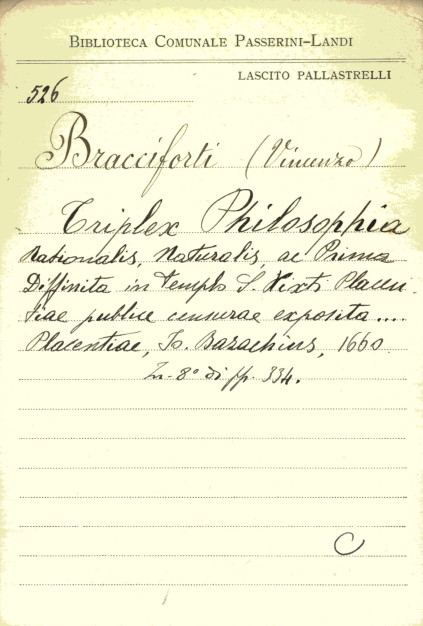 BIBLIOTECA COMUNALE PASSERINI-LANDI
LASCITO PALLASTRELLI
526
Bracciforti (Vincenzo)
Triplex Philosophia
Rationalis, Naturalis, ac Prima
Diffinita in templo S. Xixti Placen-
tiae publice censurae exposita....
Placentiae, Io. Bazachius, 1660.
In-8° di pp. 334.
C